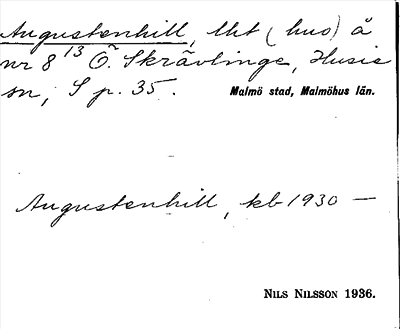 Augustenhill, lht (hus) å
nr 8 13 Ö. Skrävlinge, Husie
sn, S p. 35.
Malmö stad, Malmöhus län.
Augustenhill, kb 1930 —
NILS NILSSON 1936.